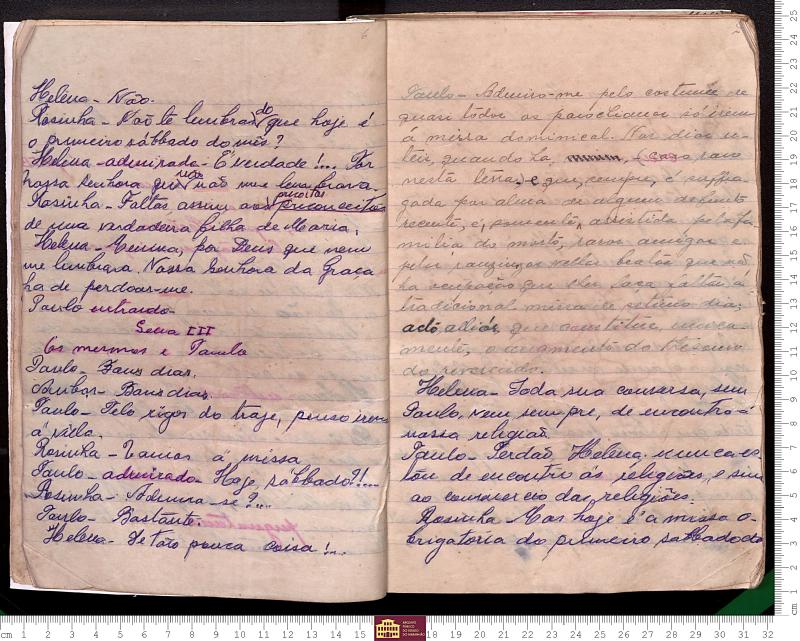 6
Helena - Não.
Rosinha - Não te lembras do que hoje é
o primeiro sábbado do mês?
Helena - admirada - É verdade!... Por
nossa senhora que não me lembrava.
Rosinha - Faltas assim aos preceitos
de uma verdadeira filha de Maria;
Helena - Menina, por Deus que nem
me lembrava. Nossa Senhora da Graça
ha de perdoar-me.
Paulo entrando -
Scena III
Os mesmos e Paulo
Paulo - Bons dias.
Ambas - Bons dias.
Paulo - Pelo rigor do traje, penso irem
á villa.
Rosinha - Vamos á missa
Paulo - admirado - Hoje, sábbado?!...
Rosinha - Admira-se?...
Paulo - Bastante.
Helena - De tão pouca coisa!...
Paulo - Admiro-me pelo costume de
quasi todos os parochianos só irem
á missa dominical. Nos dias u-
teis, quando ha, caso raro
nesta terra, e que, sempre, é suffra-
gada por alma de algum defunto
recente, é, somente, assistida pela fa-
milia do morto, raros amigos e
velhas beatas que não
ha occupação que lhes faça faltar á
tradicional missa de setimo dia;
que constitue, unica-
mente, o augmento do thesouro
do reverendo.
Helena - Toda sua conversa, seu
Paulo, vem sempre, de encontro á
nossa religião.
Paulo - Perdão Helena, nunca es-
tou de encontro ás religiões, e sim
ao commercio das religiões.
Rosinha - Mas hoje é a missa o-
brigatoria do primeiro sabbado do
ARQUIVO
PÚBLICO
DO ESTADO
DO MARANHÃO